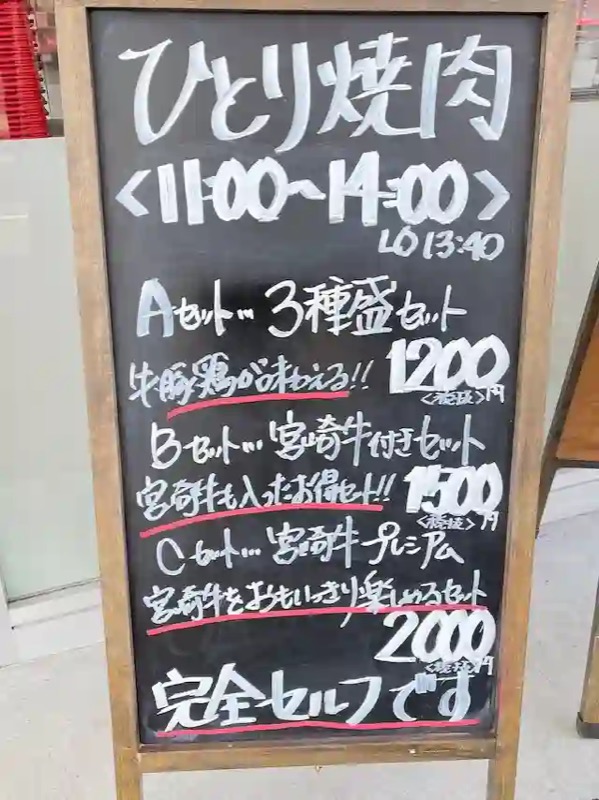 ひとり焼肉
<11:00~14:00>
LO 13:40
Aセット… 3種盛セット
牛豚鶏が味わえる!! 1200円
<税抜>
Bセット… 宮崎牛付きセット
宮崎牛も入ったお得セット!! 1500円
<税抜>
Cセット… 宮崎牛プレミアム
宮崎牛をおもいっきり楽しめるセット
2000円
<税抜>
完全セルフです